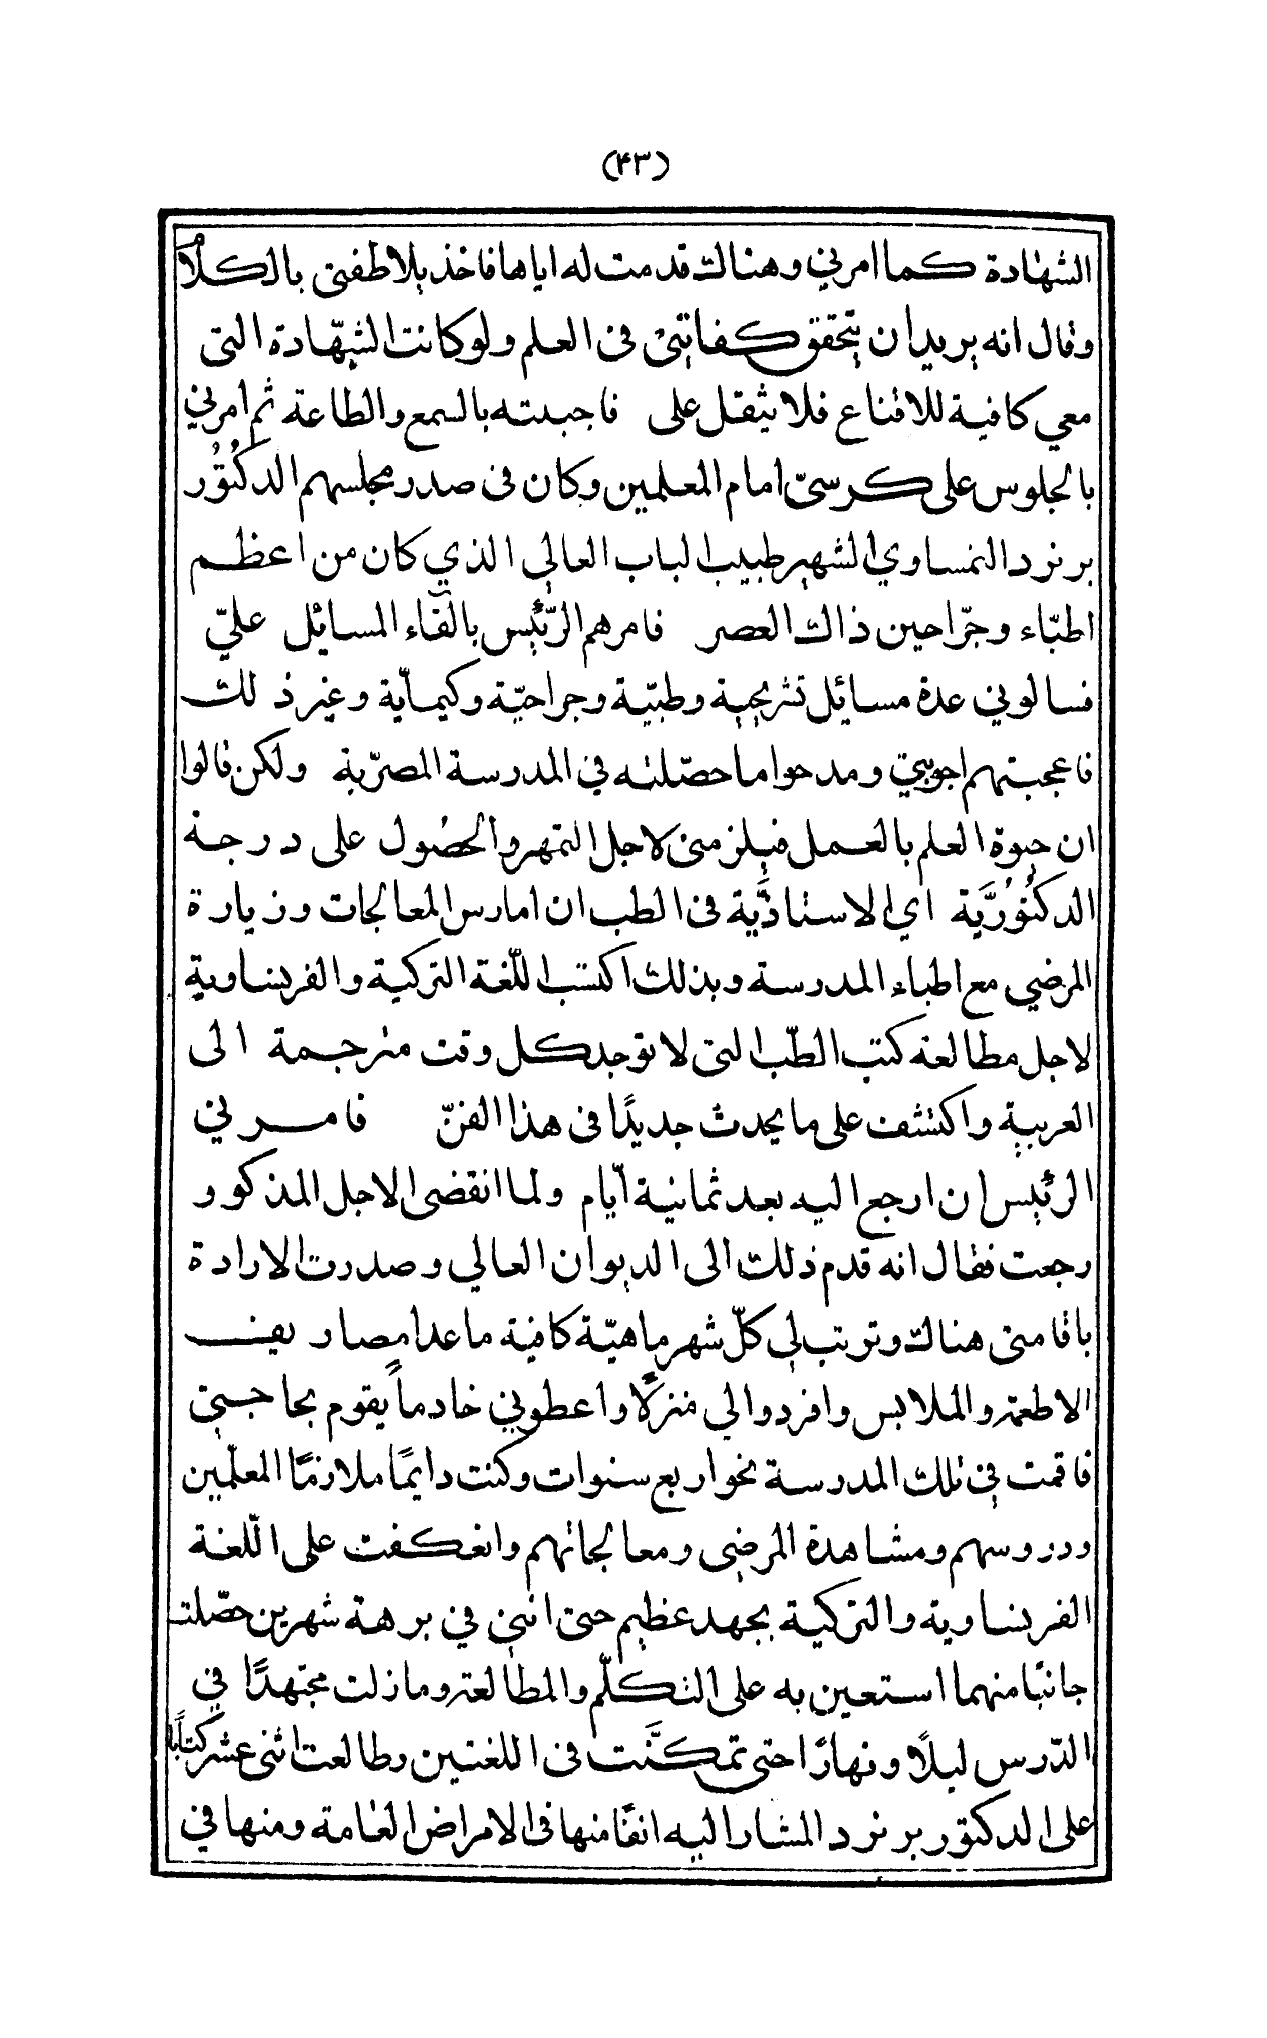 (٤٣)
الشهادة كما امرني وهناك قدمت له اياها فاخذ يلاطفني بالكلام
وقال انه يريد ان يتحقق كفايتي في العلم ولو كانت الشهادة التي
معي كافية للاقناع فلا يثقل على فاجبته بالسمع والطاعة ثم امرني
بالجلوس على كرسيّ امام المعلمين وكان في صدر مجلسهم الدكتُوُر
برنرد النمساوي الشهير طبيب الباب العالي الذي كان من اعظم
اطبّاء وجرّاحين ذاك العصر فامرهم الرّئيس بالقآء المسائل عليّ
فسالوني عدة مسائل تشريحية وطبّية وجراحيّة وكيماّية وغير ذلك
فاعجبتهم اجوبتي ومدحوا ما حصّلته في المدرسة المصرّية ولكن قالوا
ان حيوة العلم بالعمل فيلزمني لاجل التمهر والحصُول على درجة
الدكتُوُرَّية اي الاستاذَّية في الطب ان امارس المعالجات وزيارة
المرضي مع اطباء المدرسة وبذلك اكتسب اللّغة التركية والفرنساوية
لاجل مطالعة كتب الطّب التي لا توجد كل وقت مترجمة الى
العربية واكتشف على ما يحدث جديدًا في هذا الفنّ فامرني
الرئيس ان ارجع اليه بعد ثمانية ايّام ولما انقضى الاجل المذكور
رجعت فقال انه قدم ذلك الى الديوان العالي وصدرت الارادة
باقامتي هناك وترتب لي كلّ شهر ماهيّة كافية ماعدا مصاريف
الاطعمة والملابس وافردوا لي منزلًا واعطوني خادماً يقوم بحاجتي
فاقمت في تلك المدرسة نحو اربع سنوات وكنت دايمًا ملازمًا المعلّمين
ودروسهم ومشاهدة المرضى ومعالجاتهم وانعكفت على اللّغة
الفرنساوية والتركية بجهد عظيم حتى انني في برهة شهرين حصّلت
جانبًا منهما استعين به على التكلّم والمطالعة وما زلت مجتهدًا في
الدّرس ليلًا ونهارًا حتى تمكنَّت في اللغتين وطالعت اثنى عشر كتاًبا
على الدكتور برنرد المشار اليه انفًا منها في الامراض العامة ومنها في